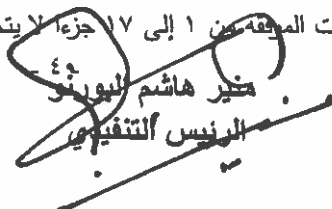 ت المرفقة من ١ إلى ١٧ جزءا لا يتم
منير هاشم
الرئيس التنفيذي